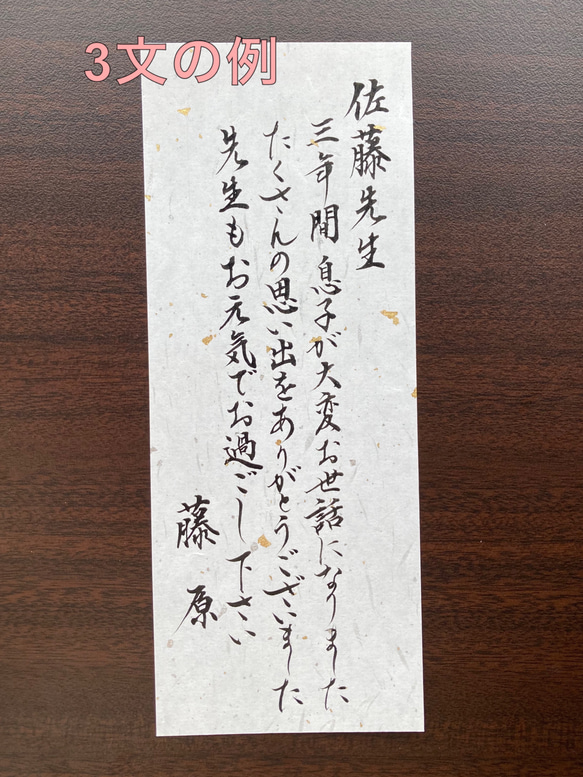 3文の例
佐藤先生
三年間息子が大変お世話になりました
たくさんの思い出をありがとうございました
先生もお元気でお過ごし下さい
藤原